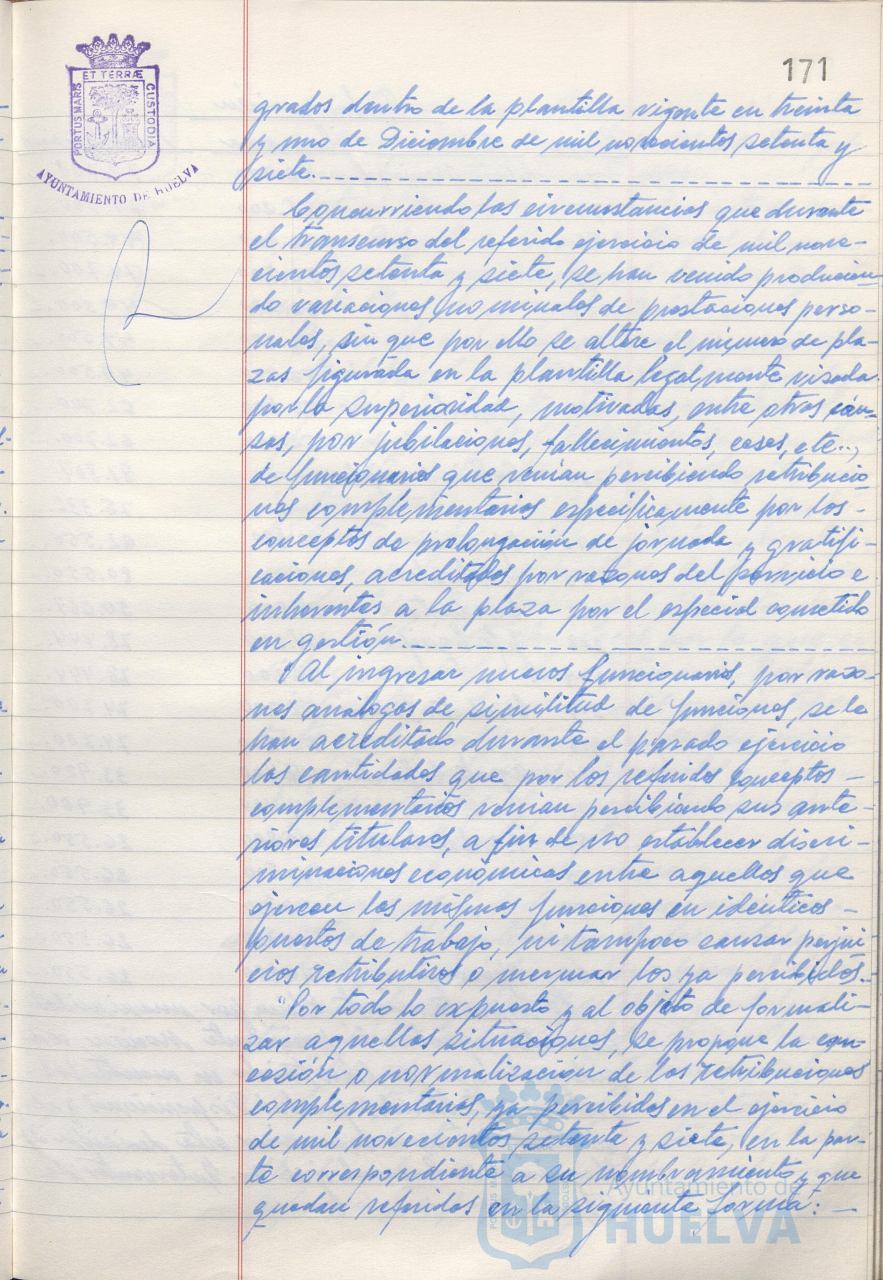 171
ET TERRÆ
PORTUS MARIS
CUSTODIA
AYUNTAMIENTO DE HUELVA
grados dentro de la plantilla vigente en treinta
y uno de Diciembre de mil novecientos setenta y
siete.
Concurriendo las circunstancias que durante
el transcurso del referido ejercicio de mil nove-
cientos setenta y siete, se han venido producien-
do variaciones nominales de prestaciones perso-
nales, sin que por ello se altere el número de pla-
zas figurada en la plantilla legalmente visada
por la superioridad, motivadas, entre otras cau-
sas, por jubilaciones, fallecimientos, ceses, etc..,
de funcionarios que venían percibiendo retribucio-
nes complementarias específicamente por los -
conceptos de prolongación de jornada y gratifi-
caciones, acreditables por razones del servicio e
inherentes a la plaza por el especial cometido
en gestión.
"Al ingresar nuevos funcionarios, por razo-
nes análogas de similitud de funciones, se le
han acreditado durante el pasado ejercicio
las cantidades que por los referidos conceptos -
complementarios venían percibiendo sus ante-
riores titulares, a fin de no establecer discri-
minaciones económicas entre aquellos que
ejercen las mismas funciones en idénticos -
puestos de trabajo, ni tampoco causar perjui-
cios retributivos o mermar los ya percibidos.-
"Por todo lo expuesto y al objeto de formali-
zar aquellas situaciones, se propone la con-
cesión o normalización de las retribuciones
complementarias, ya percibidas en el ejercicio
de mil novecientos setenta y siete, en la par-
te correspondiente a su nombramiento y que
quedan referidos en la siguiente forma: -
Ayuntamiento de
HUELVA